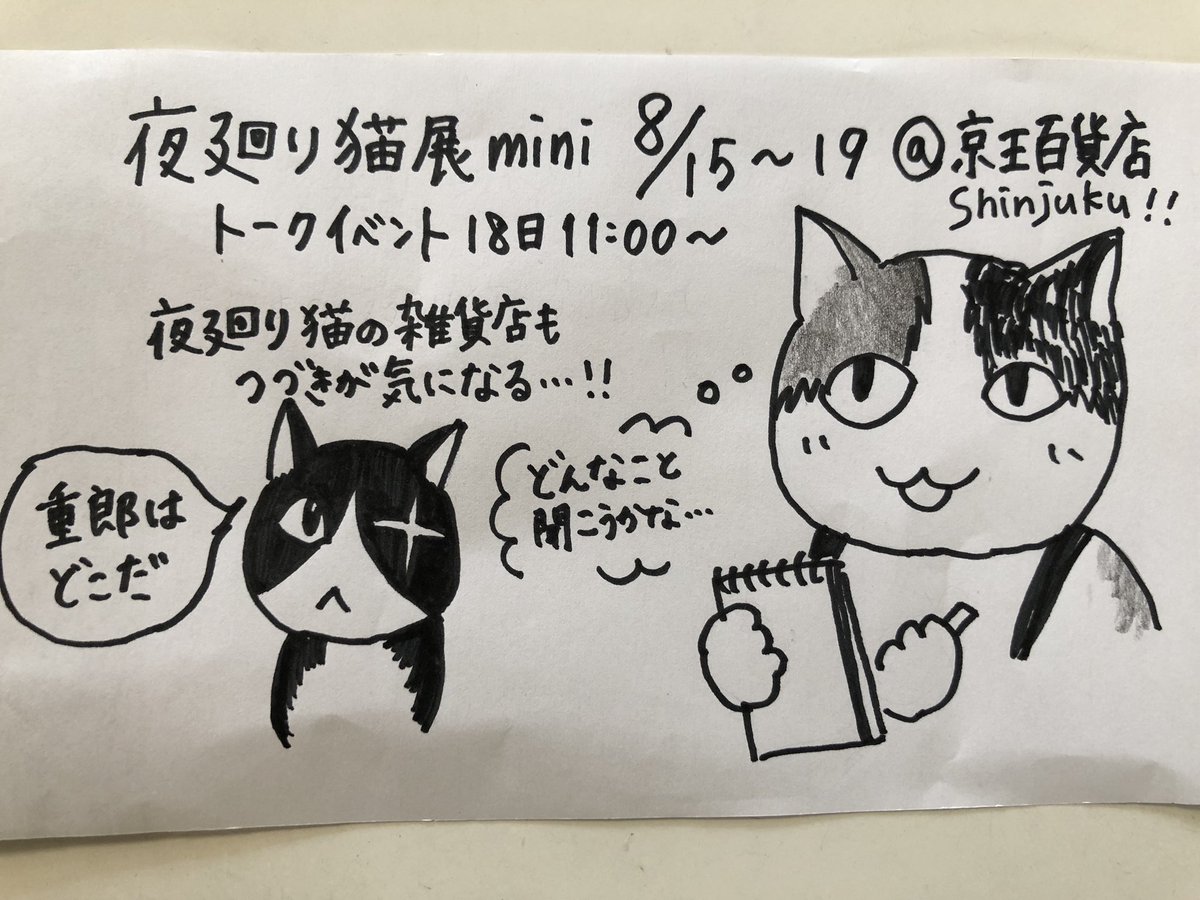 夜廻り猫展mini 8/15～19 @京王百貨店
Shinjuku!!
トークイベント 18日 11:00～
夜廻り猫の雑貨店も
つづきが気になる…!!
重郎は
どこだ
どんなこと
聞こうかな…